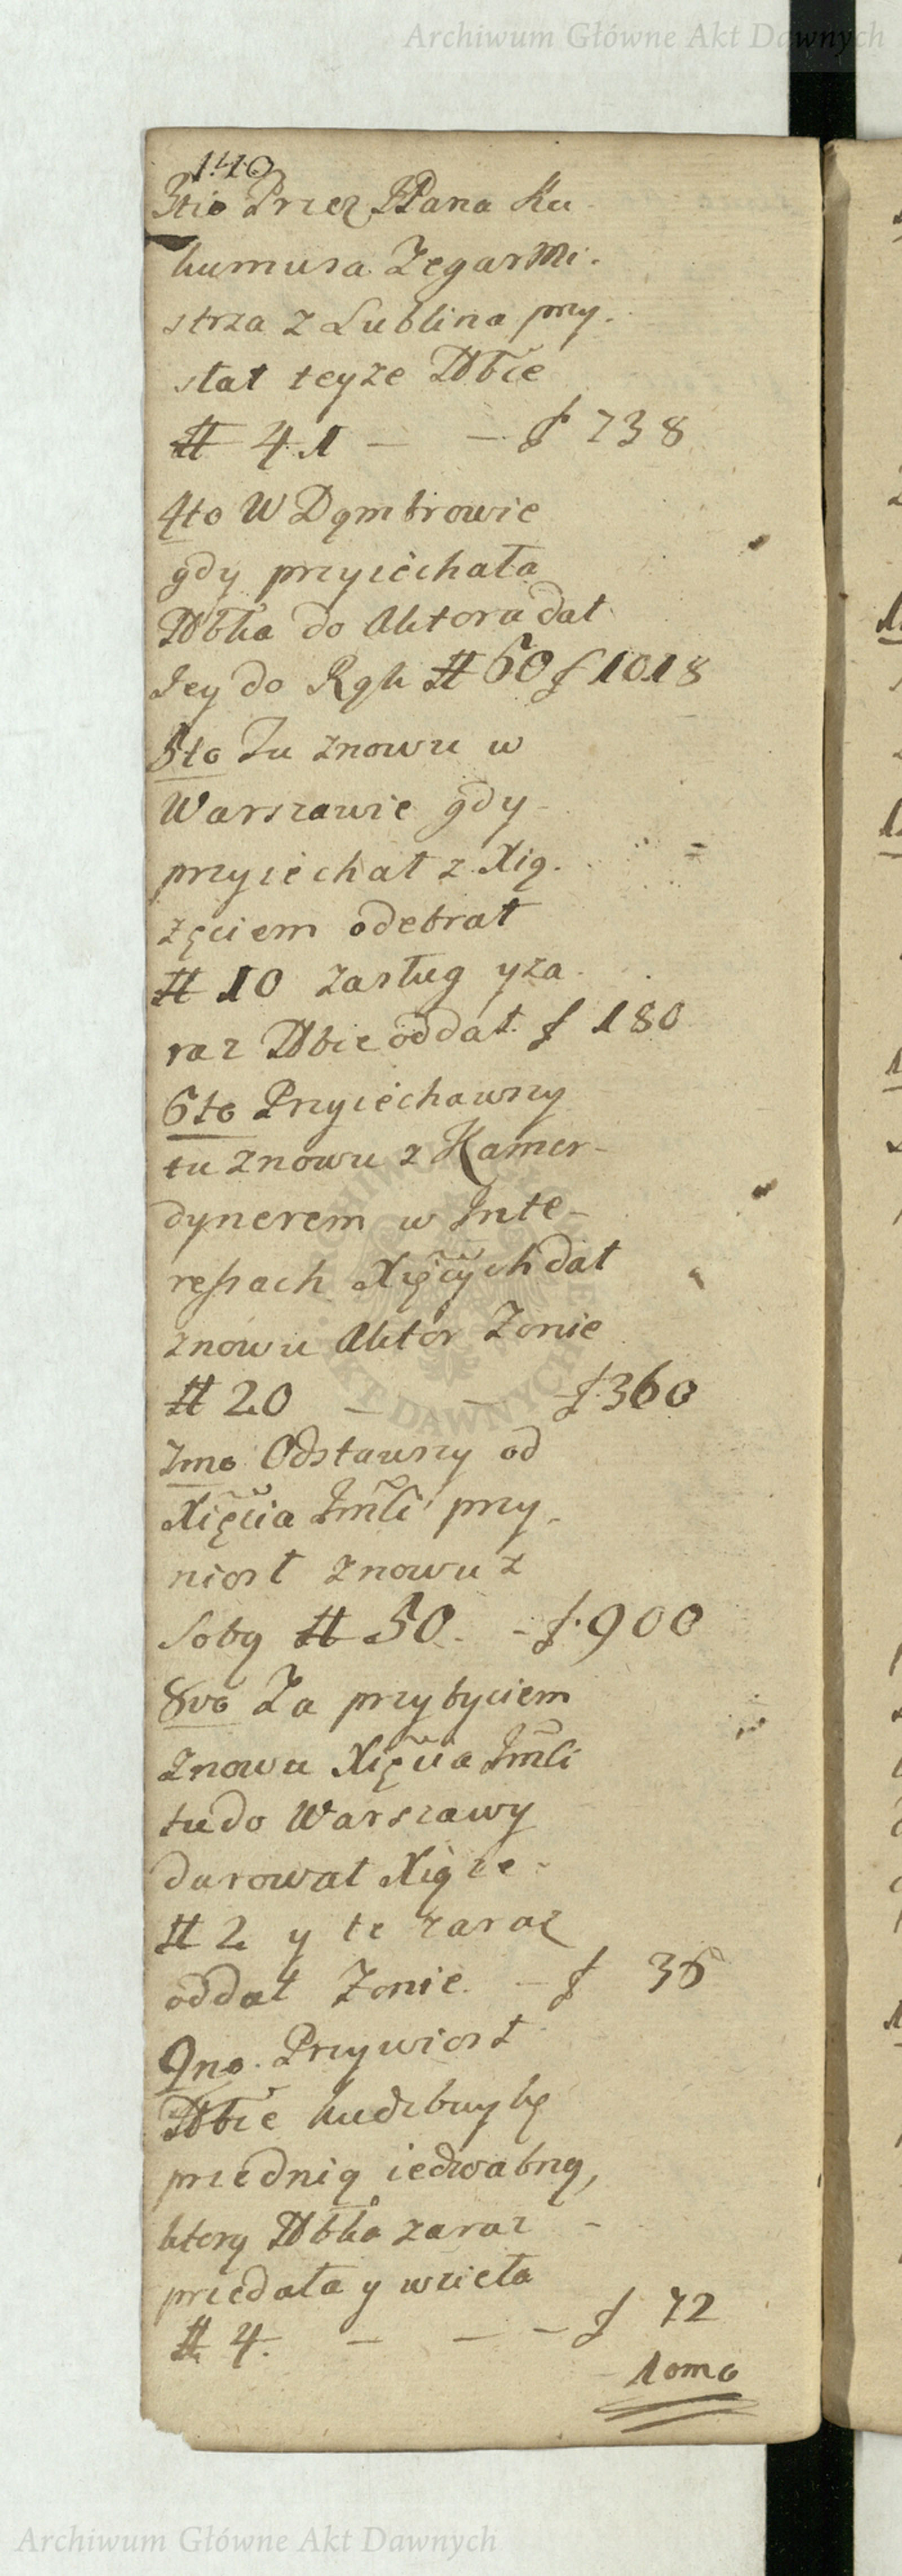 Archiwum Główne Akt Dawnych
140
3tio Przez JPana Ku
kumusa Zegarmi.
strza z Lublina przy.
słał teyze Dbcie
# 41 — — f 738
4to W Dąmbrowie
gdy przyiechała
Dbka do Aktora dał
Jey do Rąk # 60 f 1018
5to Tu znowu w
Warszawie gdy
przyiechał z Xią.
zęciem odebrał
# 10 zasług y za
raz Dbcie oddał f 180
6to Przyiechawszy
tu znowu z Kamer-
dynerem w Inte-
ressach Xięcych dał
znowu Aktor Zonie
# 20 — — f 360
7mo Odstawszy od
Xięcia Jmci przy.
niosł znowu z
sobą # 50. - f. 900
8vo Za przybyciem
znowu Xięcia Jmci
tu do Warszawy
darował Xiąze -
# 2 y te zaraz
oddał Zonie. — f 36
9no. Przywiosł
Dbcie
przednią iedwabną,
ktorą Dbka zaraz -
przedała y wzieła
# 4. — — — f 72
10mo
Archiwum Główne Akt Dawnych